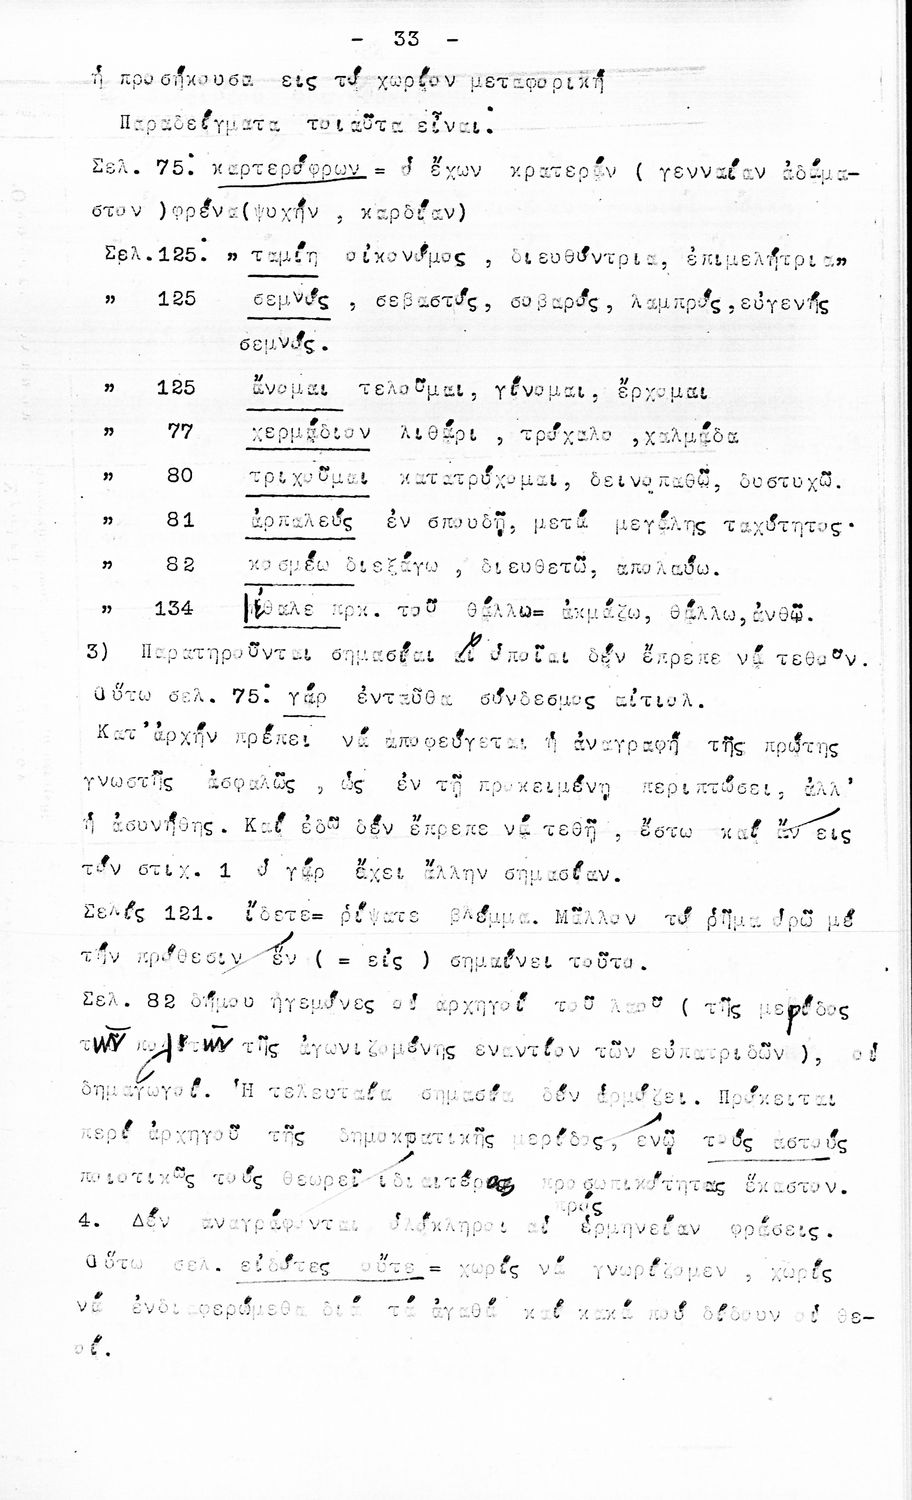 - 33 -
ἡ προσήκουσα εις τό χωρίον μεταφορική
Παραδείγματα τοιαῦτα εἶναι:
Σελ. 75: καρτερόφρων = ὁ ἔχων κρατεράν ( γενναίαν ἀδάμα-
στον )φρένα(ψυχήν , καρδίαν)
Σελ.125: " ταμίη οἰκονόμος , διευθύντρια, ἐπιμελήτρια"
" 125 σεμνός , σεβαστός, σοβαρός, λαμπρός,εὐγενής
σεμνός.
" 125 ἄνομαι τελοῦμαι, γίνομαι, ἔρχομαι
" 77 χερμάδιον λιθάρι , τρόχαλο ,χαλμάδα
" 80 τριχοῦμαι κατατρύχομαι, δεινοπαθῶ, δυστυχῶ.
" 81 ἁρπαλεύς ἐν σπουδῇ, μετά μεγάλης ταχύτητος.
" 82 κοσμέω διεξάγω , διευθετῶ, απολαύω.
" 134 τέθαλε πρκ. τοῦ θάλλω= ἀκμάζω, θάλλω,ἀνθῶ.
3) Παρατηροῦνται σημασίαι αἱ ὁποῖαι δέν ἔπρεπε νά τεθοῦν.
Οὕτω σελ. 75: γάρ ἐνταῦθα σύνδεσμος αἰτιολ.
Κατ'ἀρχήν πρέπει νά αποφεύγεται ἡ ἀναγραφή τῆς πρώτης
γνωστῆς ἀσφαλῶς , ὡς ἐν τῇ προκειμένῃ περιπτώσει, ἀλλ'
ἡ ἀσυνήθης. Καί ἐδῶ δέν ἔπρεπε νά τεθῇ , ἔστω καί ἄν εις
τόν στιχ. 1 ὁ γάρ ἔχει ἄλλην σημασίαν.
Σελίς 121. ἴδετε= ῥίψατε βλέμμα. Μᾶλλον τό ῥῆμα ὁρῶ μέ
τήν πρόθεσιν ἐν ( = εἰς ) σημαίνει τοῦτο.
Σελ. 82 δήμου ἡγεμόνες οἱ ἀρχηγοί τοῦ λαοῦ ( τῆς μερίδος
τῶν πολιτῶν τῆς ἀγωνιζομένης εναντίον τῶν εὐπατριδῶν ), οἱ
δημαγωγοί. Ἡ τελευταία σημασία δέν ἁρμόζει. Πρόκειται
περί ἀρχηγοῦ τῆς δημοκρατικῆς μερίδος, ενῷ τούς ἀστούς
ποιοτικῶς τούς θεωρεῖ ιδιαιτέρας προσωπικότητας ἕκαστον.
πρός
4. Δέν αναγράφονται ὁλόκληροι αἱ ἑρμηνείαν φράσεις.
Οὕτω σελ. εἰδότες οὔτε = χωρίς νά γνωρίζομεν , χωρίς
νά ἐνδιαφερώμεθα διά τά ἀγαθά καί κακά πού δίδουν οἱ θε-
οί.